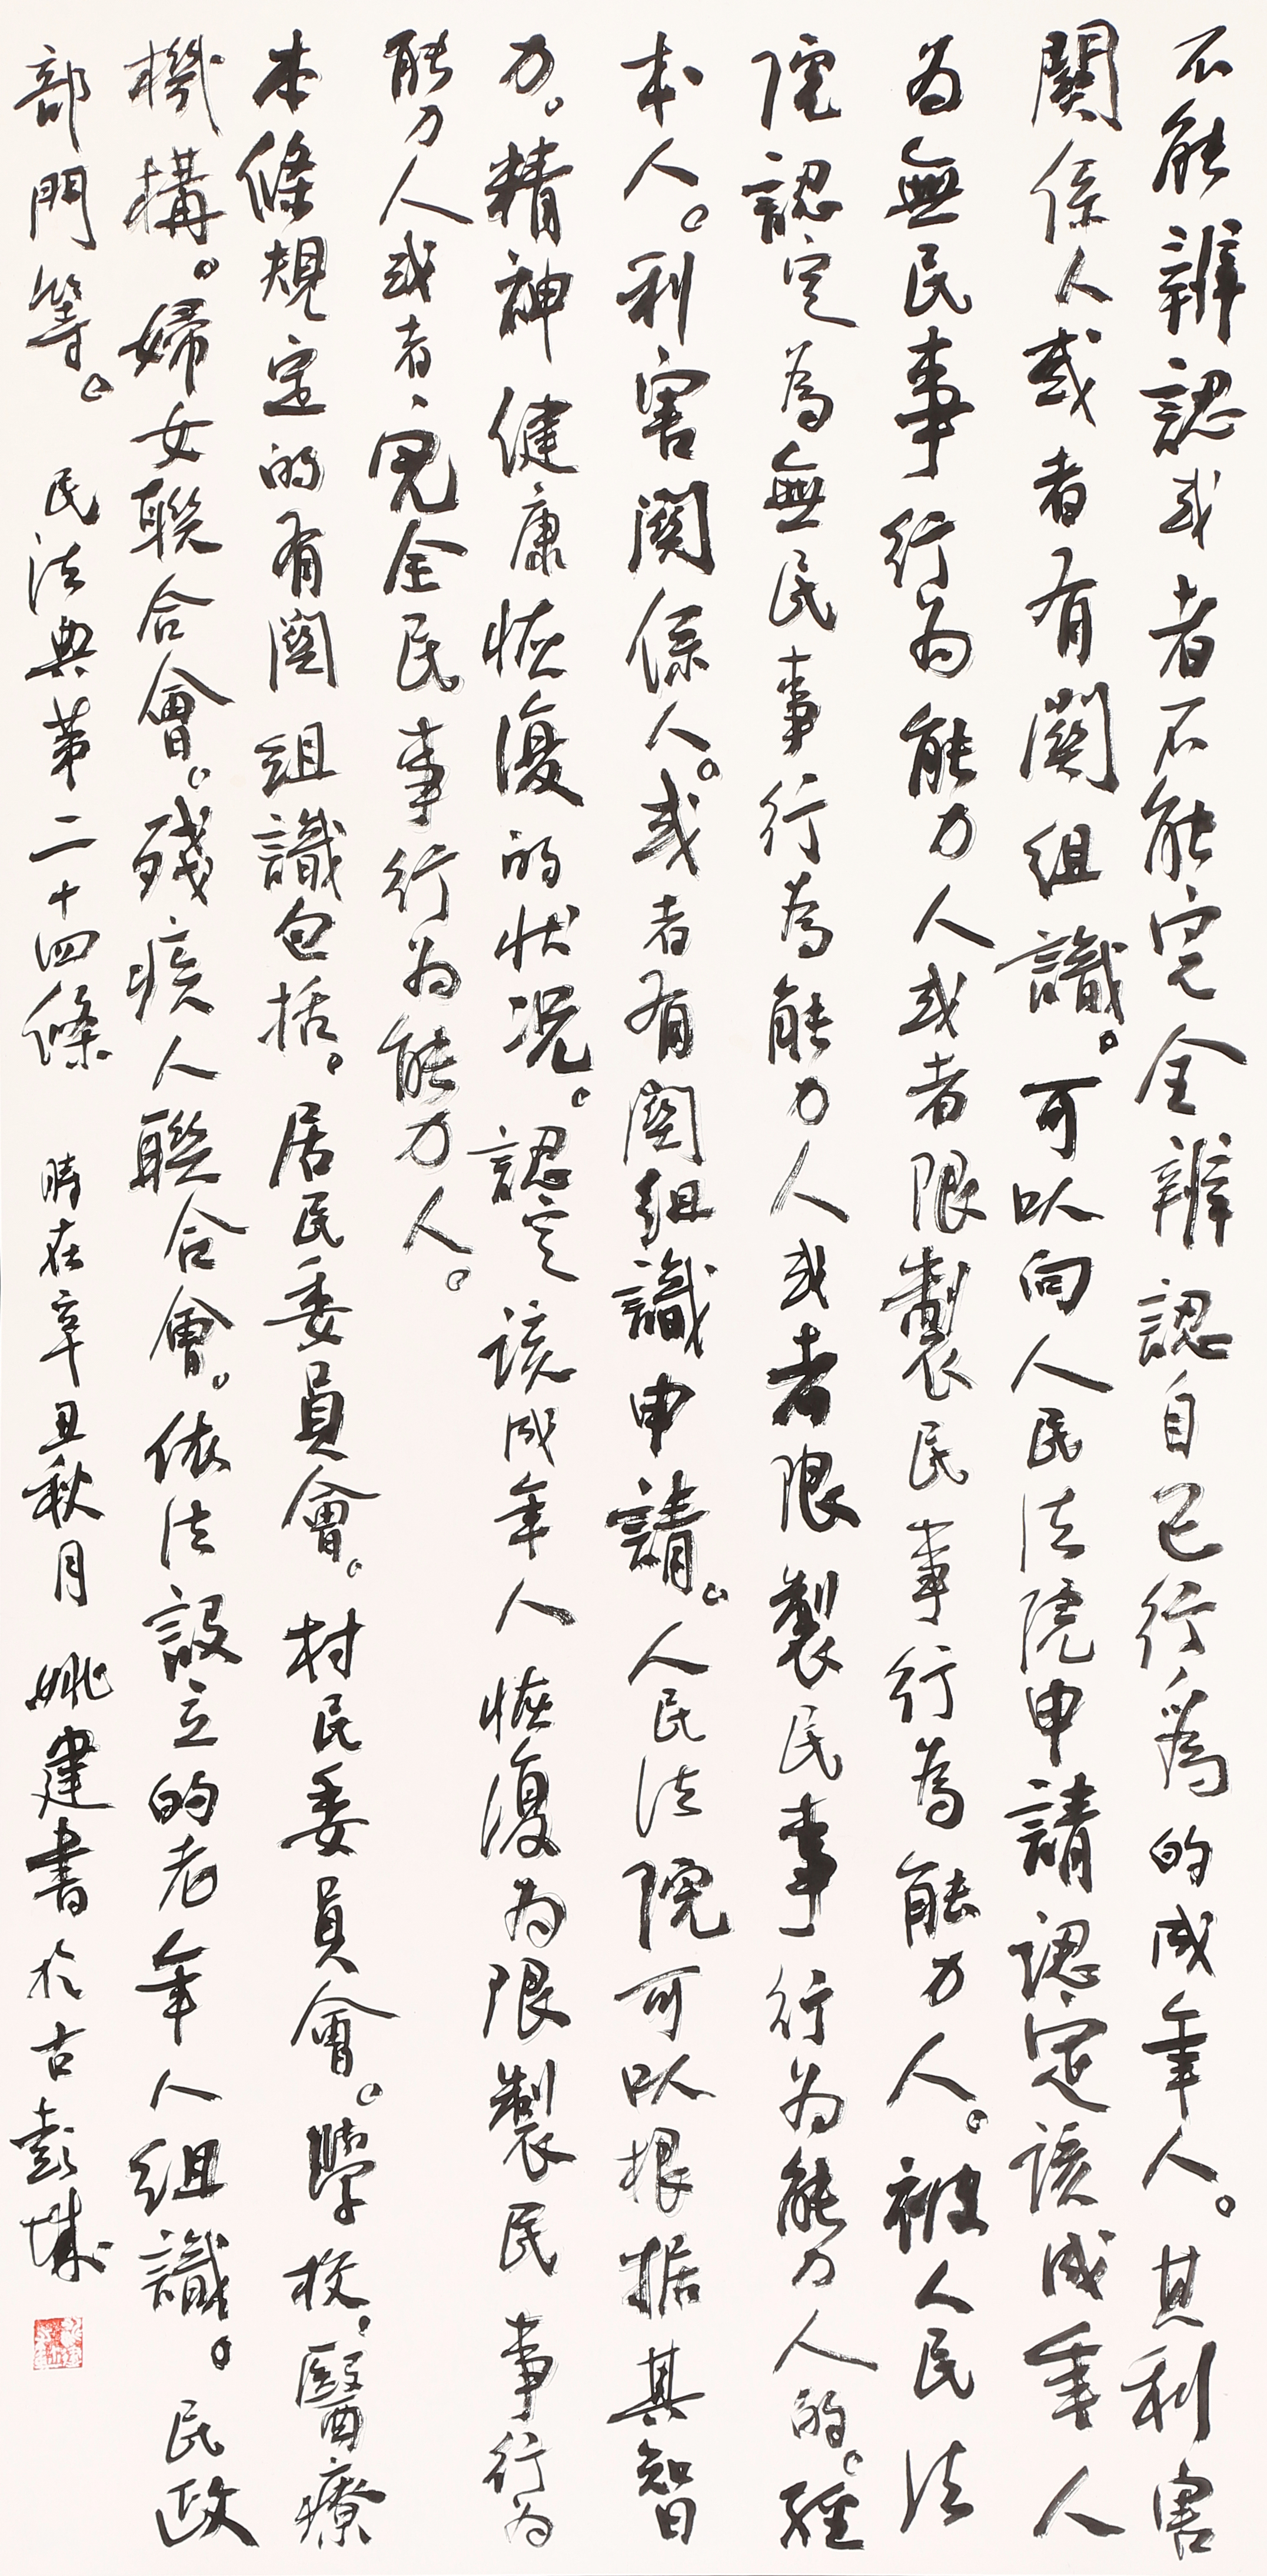 不能辨認或者不能完全辨認自己行爲的成年人。其利害
関係人或者有関組識。可以向人民法院申請認定該成年人
为無民事行为能力人或者限製民事行為能力人。被人民法
院認定為無民事行為能力人或者限製民事行为能力人的。經
本人。利害関係人。或者有関組識申請。人民法院可以根据其智
力。精神健康恢復的状况。認定該成年人恢復为限製民事行为
能力人或者完全民事行为能力人。
本條規定的有関組識包括。居民委員會。村民委員會。學校。醫療
機構。婦女聯合會。殘疾人聯合會。依法設立的老年人組識。民政
部門等。民法典第二十四條 時在辛丑秋月 姚建書於古彭城